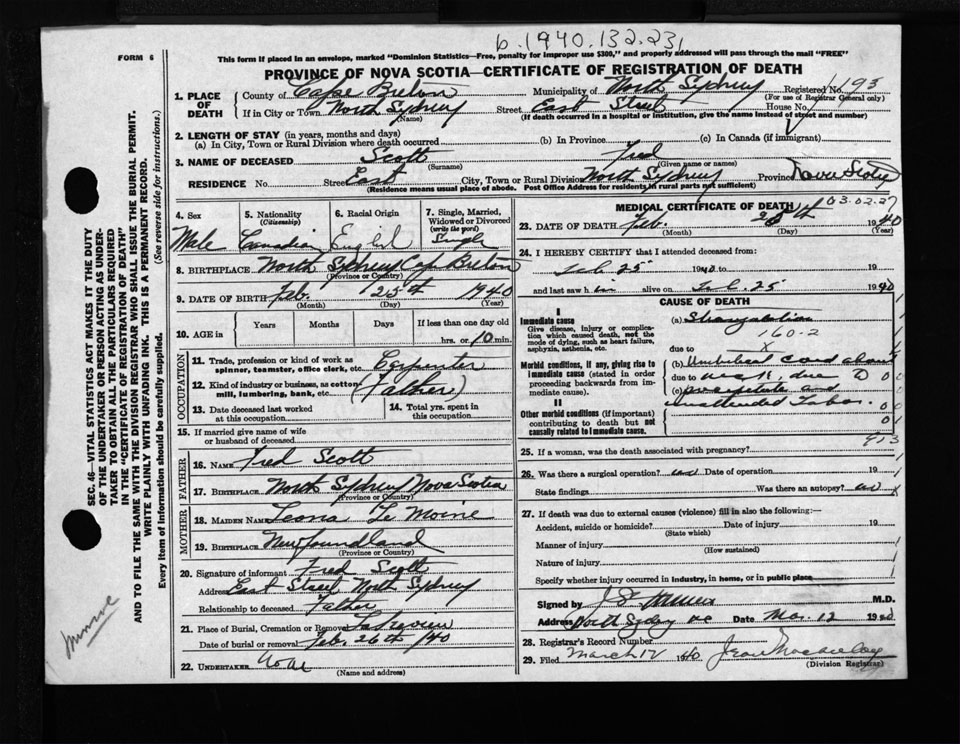 b.1940.132.231
This form if placed in an envelope, marked "Dominion Statistics—Free, penalty for improper use $300," and properly addressed will pass through the mail "FREE"
FORM 6
PROVINCE OF NOVA SCOTIA—CERTIFICATE OF REGISTRATION OF DEATH
SEC. 46—VITAL STATISTICS ACT MAKES IT THE DUTY
OF THE UNDERTAKER OR PERSON ACTING AS UNDER-
TAKER TO OBTAIN ALL THE PARTICULARS REQUIRED
IN THE "CERTIFICATE OF REGISTRATION OF DEATH"
AND TO FILE THE SAME WITH THE DIVISION REGISTRAR WHO SHALL ISSUE THE BURIAL PERMIT.
WRITE PLAINLY WITH UNFADING INK. THIS IS A PERMANENT RECORD.
Every item of information should be carefully supplied. (See reverse side for instructions.)
1. PLACE OF DEATH
County of Cape Breton Municipality of North Sydney Registered No. 193
(For use of Registrar General only)
If in City or Town North Sydney Street East Street House No.
(Name) (If death occurred in a hospital or institution, give the name instead of street and number)
2. LENGTH OF STAY (in years, months and days)
(a) In City, Town or Rural Division where death occurred (b) In Province (c) In Canada (if immigrant)
3. NAME OF DECEASED Scott Fred
(Surname) (Given name or names)
RESIDENCE No. Street East City, Town or Rural Division North Sydney Province Nova Scotia
(Residence means usual place of abode. Post Office Address for residents in rural parts not sufficient)
4. Sex Male
5. Nationality (Citizenship) Canadian
6. Racial Origin English
7. Single, Married, Widowed or Divorced (write the word) Single
8. BIRTHPLACE North Sydney Cap Breton
(Province or Country)
9. DATE OF BIRTH Feb. 25th 1940
(Month) (Day) (Year)
10. AGE in Years Months Days If less than one day old
hrs. or 10 min.
OCCUPATION
11. Trade, profession or kind of work as spinner, teamster, office clerk, etc. Carpenter
12. Kind of industry or business, as cotton-mill, lumbering, bank, etc. (Father)
13. Date deceased last worked at this occupation
14. Total yrs. spent in this occupation
15. If married give name of wife or husband of deceased
FATHER
16. NAME Fred Scott
17. BIRTHPLACE North Sydney Nova Scotia
(Province or Country)
MOTHER
18. MAIDEN NAME Leona Le Moine
19. BIRTHPLACE Newfoundland
(Province or Country)
20. Signature of informant Fred Scott
Address East Street North Sydney
Relationship to deceased Father
21. Place of Burial, Cremation or Removal Lakeview
Date of burial or removal Feb. 26th /40
22. UNDERTAKER None
(Name and address)
MEDICAL CERTIFICATE OF DEATH 03.02.27
23. DATE OF DEATH Feb. 25th 1940
(Month) (Day) (Year)
24. I HEREBY CERTIFY that I attended deceased from:
Feb 25 1940 to 19
and last saw h m alive on Feb. 25 1940
CAUSE OF DEATH
I
Immediate cause
Give disease, injury or complication which caused death, not the mode of dying, such as heart failure, asphyxia, asthenia, etc.
(a) Strangulation
160-2
due to X
Morbid conditions, if any, giving rise to immediate cause (stated in order proceeding backwards from immediate cause).
(b) Umbilical cord about
due to neck, due
(c) precipitate and
unattended labor.
II
Other morbid conditions (if important) contributing to death but not causally related to immediate cause.
913
25. If a woman, was the death associated with pregnancy?
26. Was there a surgical operation? no Date of operation 19
State findings Was there an autopsy? no
27. If death was due to external causes (violence) fill in also the following:
Accident, suicide or homicide? Date of injury 19
(State which)
Manner of injury
(How sustained)
Nature of injury
Specify whether injury occurred in industry, in home, or in public place
Signed by M.D.
Address North Sydney NS Date Mar. 12 1940
28. Registrar's Record Number
29. Filed March 12 1940 Jean Macaulay
(Division Registrar)